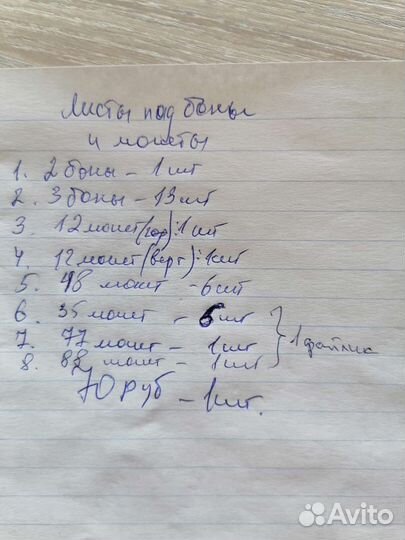 Листы под боны
и монеты
1. 2 боны - 1 шт
2. 3 боны - 13 шт
3. 12 монет (гор): 1 шт
4. 12 монет (верт): 1 шт
5. 48 монет - 6 шт
6. 35 монет - 5 шт
7. 77 монет - 1 шт
8. 88 монет - 1 шт
} 1 файлик
70 руб - 1 шт.
Avito